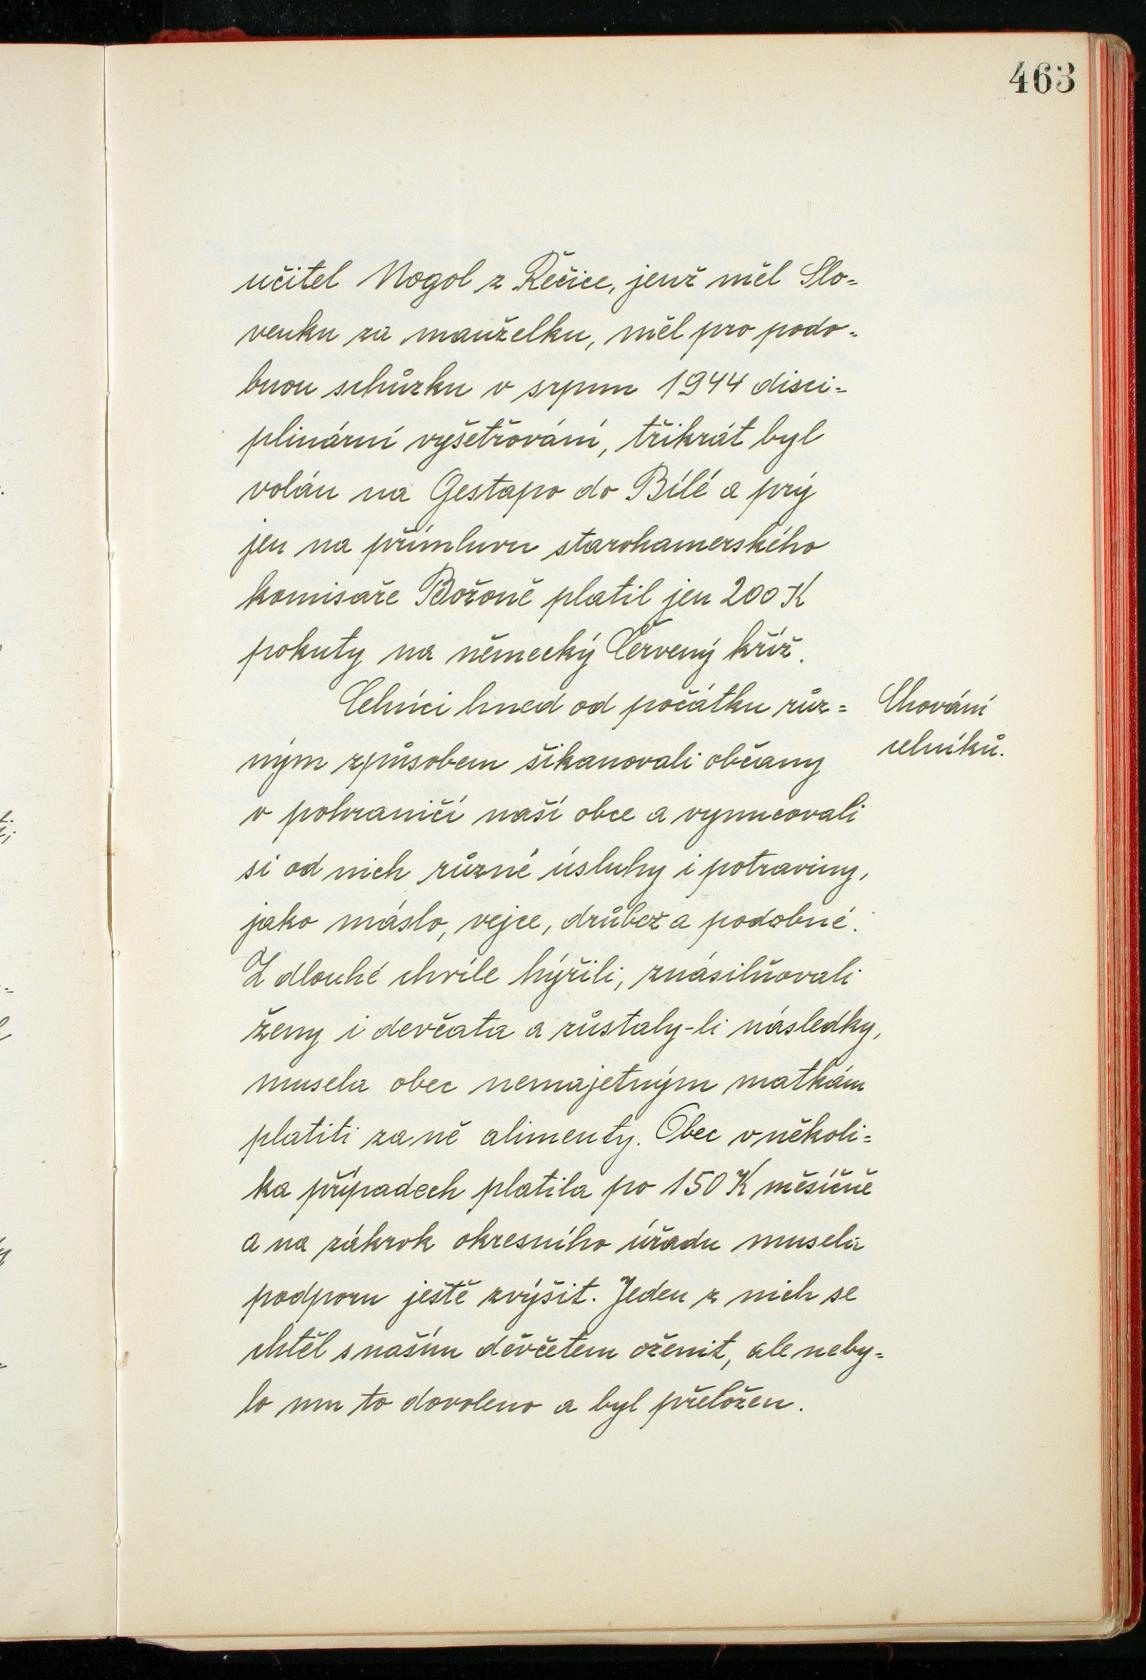 463
učitel Nogol z Řečice, jenž měl Slo-
venku za manželku, měl pro podo-
bnou schůzku v srpnu 1944 disci-
plinární vyšetřování, třikrát byl
volán na Gestapo do Bílé a prý
jen na přímluvu starohamerského
komisaře Božoně platil jen 200 K
pokuty na německý Červený kříž.
Celníci hned od počátku růz-
ným způsobem šikanovali občany
v pohraničí naší obce a vynucovali
si od nich různé úsluhy i potraviny,
jako máslo, vejce, drůbež a podobné.
Z dlouhé chvíle hýřili, znásilňovali
ženy i devčata a zůstaly-li následky,
musela obec nemajetným matkám
platiti za ně alimenty. Obec v několi-
ka případech platila po 150 K měsíčně
a na zákrok okresního úřadu musela
podporu ještě zvýšit. Jeden z nich se
chtěl s naším děvčetem oženit, ale neby-
lo mu to dovoleno a byl přeložen.
Chování
celníků.